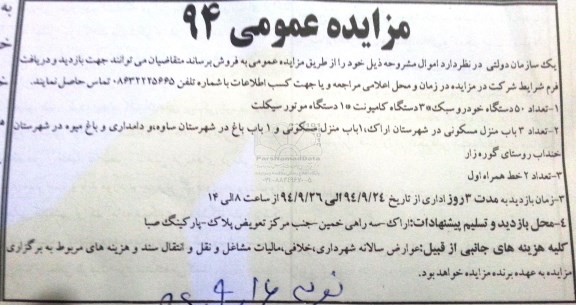 مزایده عمومی ۹۴
یک سازمان دولتی در نظر دارد اموال مشروحه ذیل خود را از طریق مزایده عمومی به فروش برساند متقاضیان می توانند جهت بازدید و دریافت
فرم شرایط شرکت در مزایده در زمان و محل اعلامی مراجعه و یا جهت کسب اطلاعات با شماره تلفن ۰۸۶۳۲۲۲۵۶۶۵ تماس حاصل نمایند.
۱-تعداد ۵۰ دستگاه خودرو سبک*۳ دستگاه کامیونت*۱ دستگاه موتور سیکلت
۲-تعداد ۳ باب منزل مسکونی در شهرستان اراک،۱باب منزل مسکونی و ۱ باب باغ در شهرستان ساوه،و دامداری و باغ میوه در شهرستان
خنداب روستای گوره زار
۳-تعداد ۲ خط همراه اول
۳-زمان بازدید به مدت ۳ روز اداری از تاریخ ۹۴/۹/۲۴ الی ۹۴/۹/۲۶ از ساعت ۸ الی ۱۴
۴-محل بازدید و تسلیم پیشنهادات:اراک-سه راهی خمین-جنب مرکز تعویض پلاک-پارکینگ صبا
کلیه هزینه های جانبی از قبیل:عوارض سالانه شهرداری،خلافی،مالیات مشاغل و نقل و انتقال سند و هزینه های مربوط به برگزاری
مزایده به عهده برنده مزایده خواهد بود.